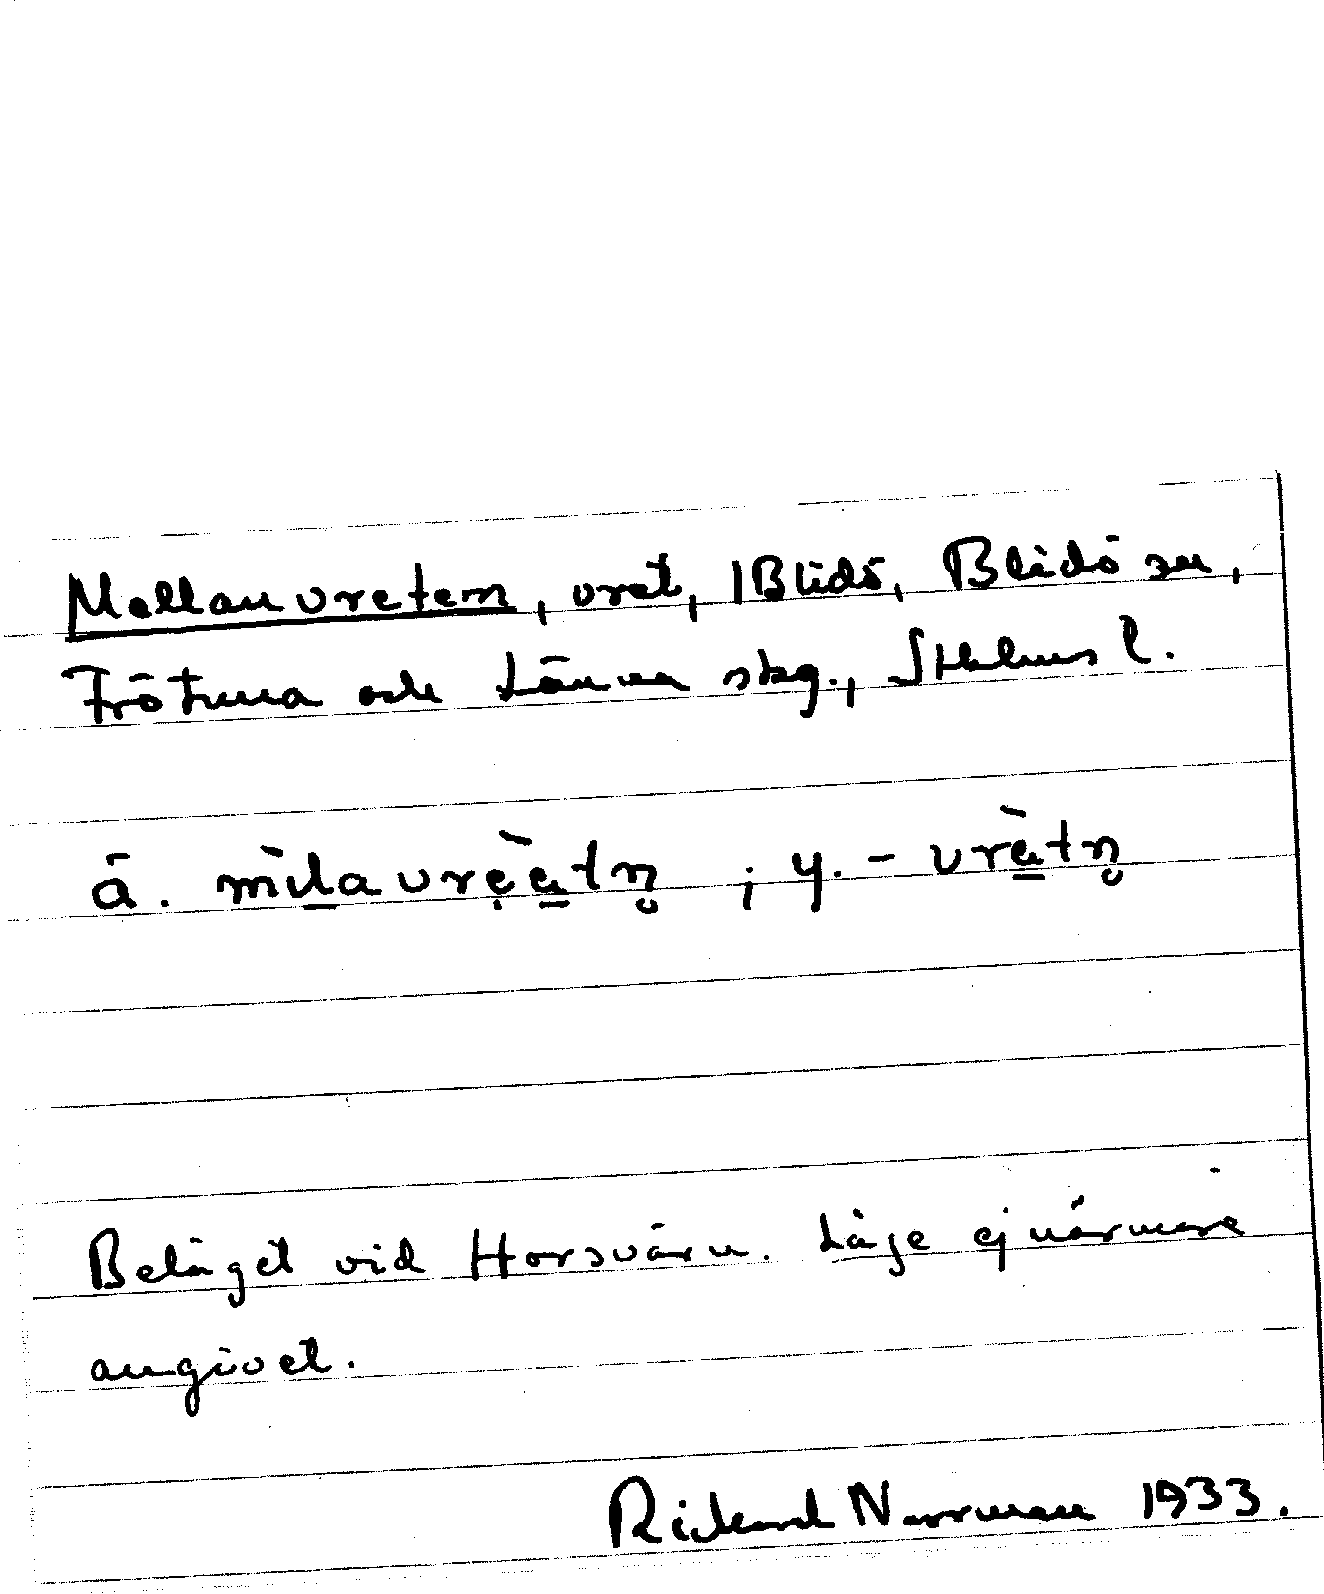 Mellanvreten, vret, 1 Blidö, Blidö sn,
Frötuna och Länna skg., Sthlms l.
ä. mìlavrẹ̀a̱tn̥ ; y. - vrèa̱tn̥
Beläget vid Horsvärn. Läge ej närmare
angivet.
Rickard Norrman 1933.